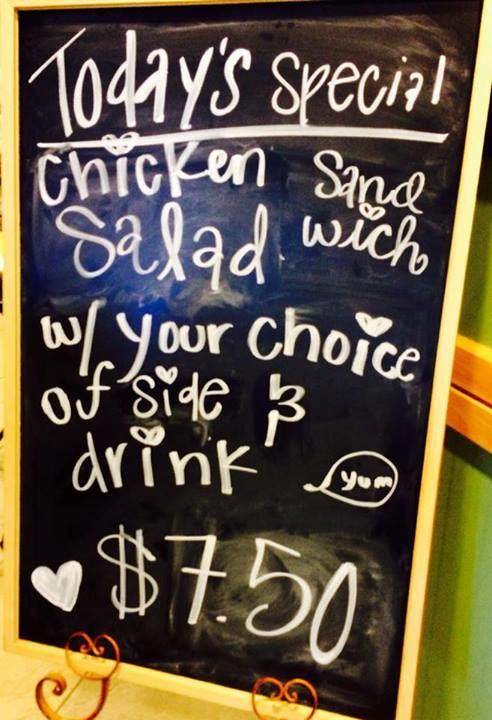 Today's Special
Chicken Sand
Salad wich
w/ your choice
of side &
drink
Yum
$7.50